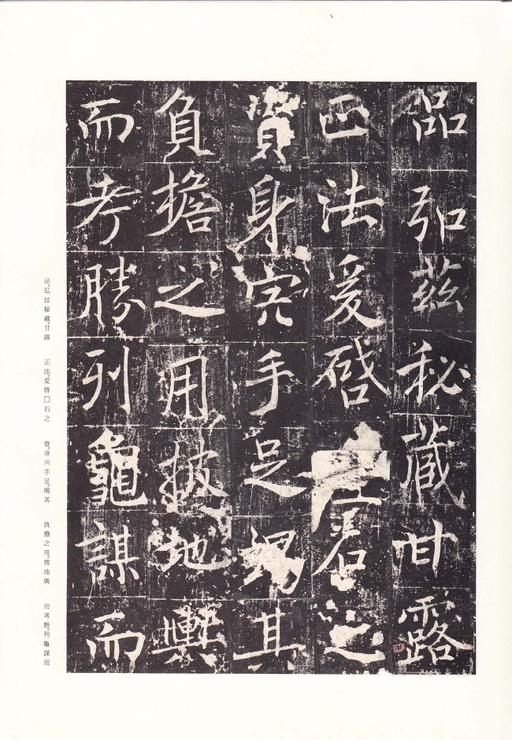 品弘茲秘藏甘露
正法爰啓石之
資身宍手足竭其
負擔之用披地輿
而考勝列龜謀而
品弘茲秘藏甘露 正法爰啓□石之 資身宍手足竭其 負擔之用披地輿 而考勝列龜謀而